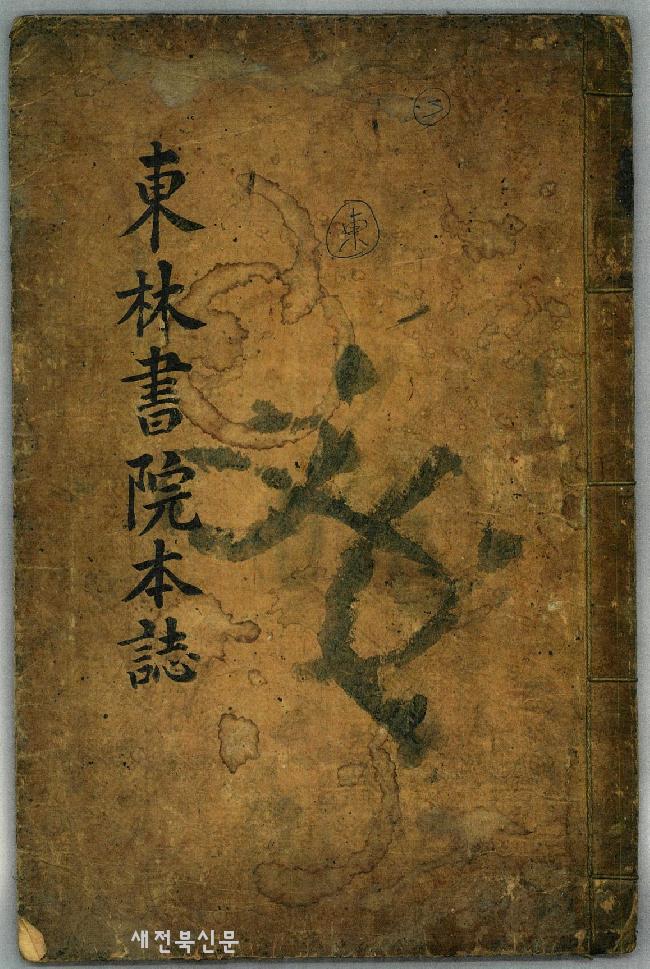 東
東林書院本誌
새전북신문